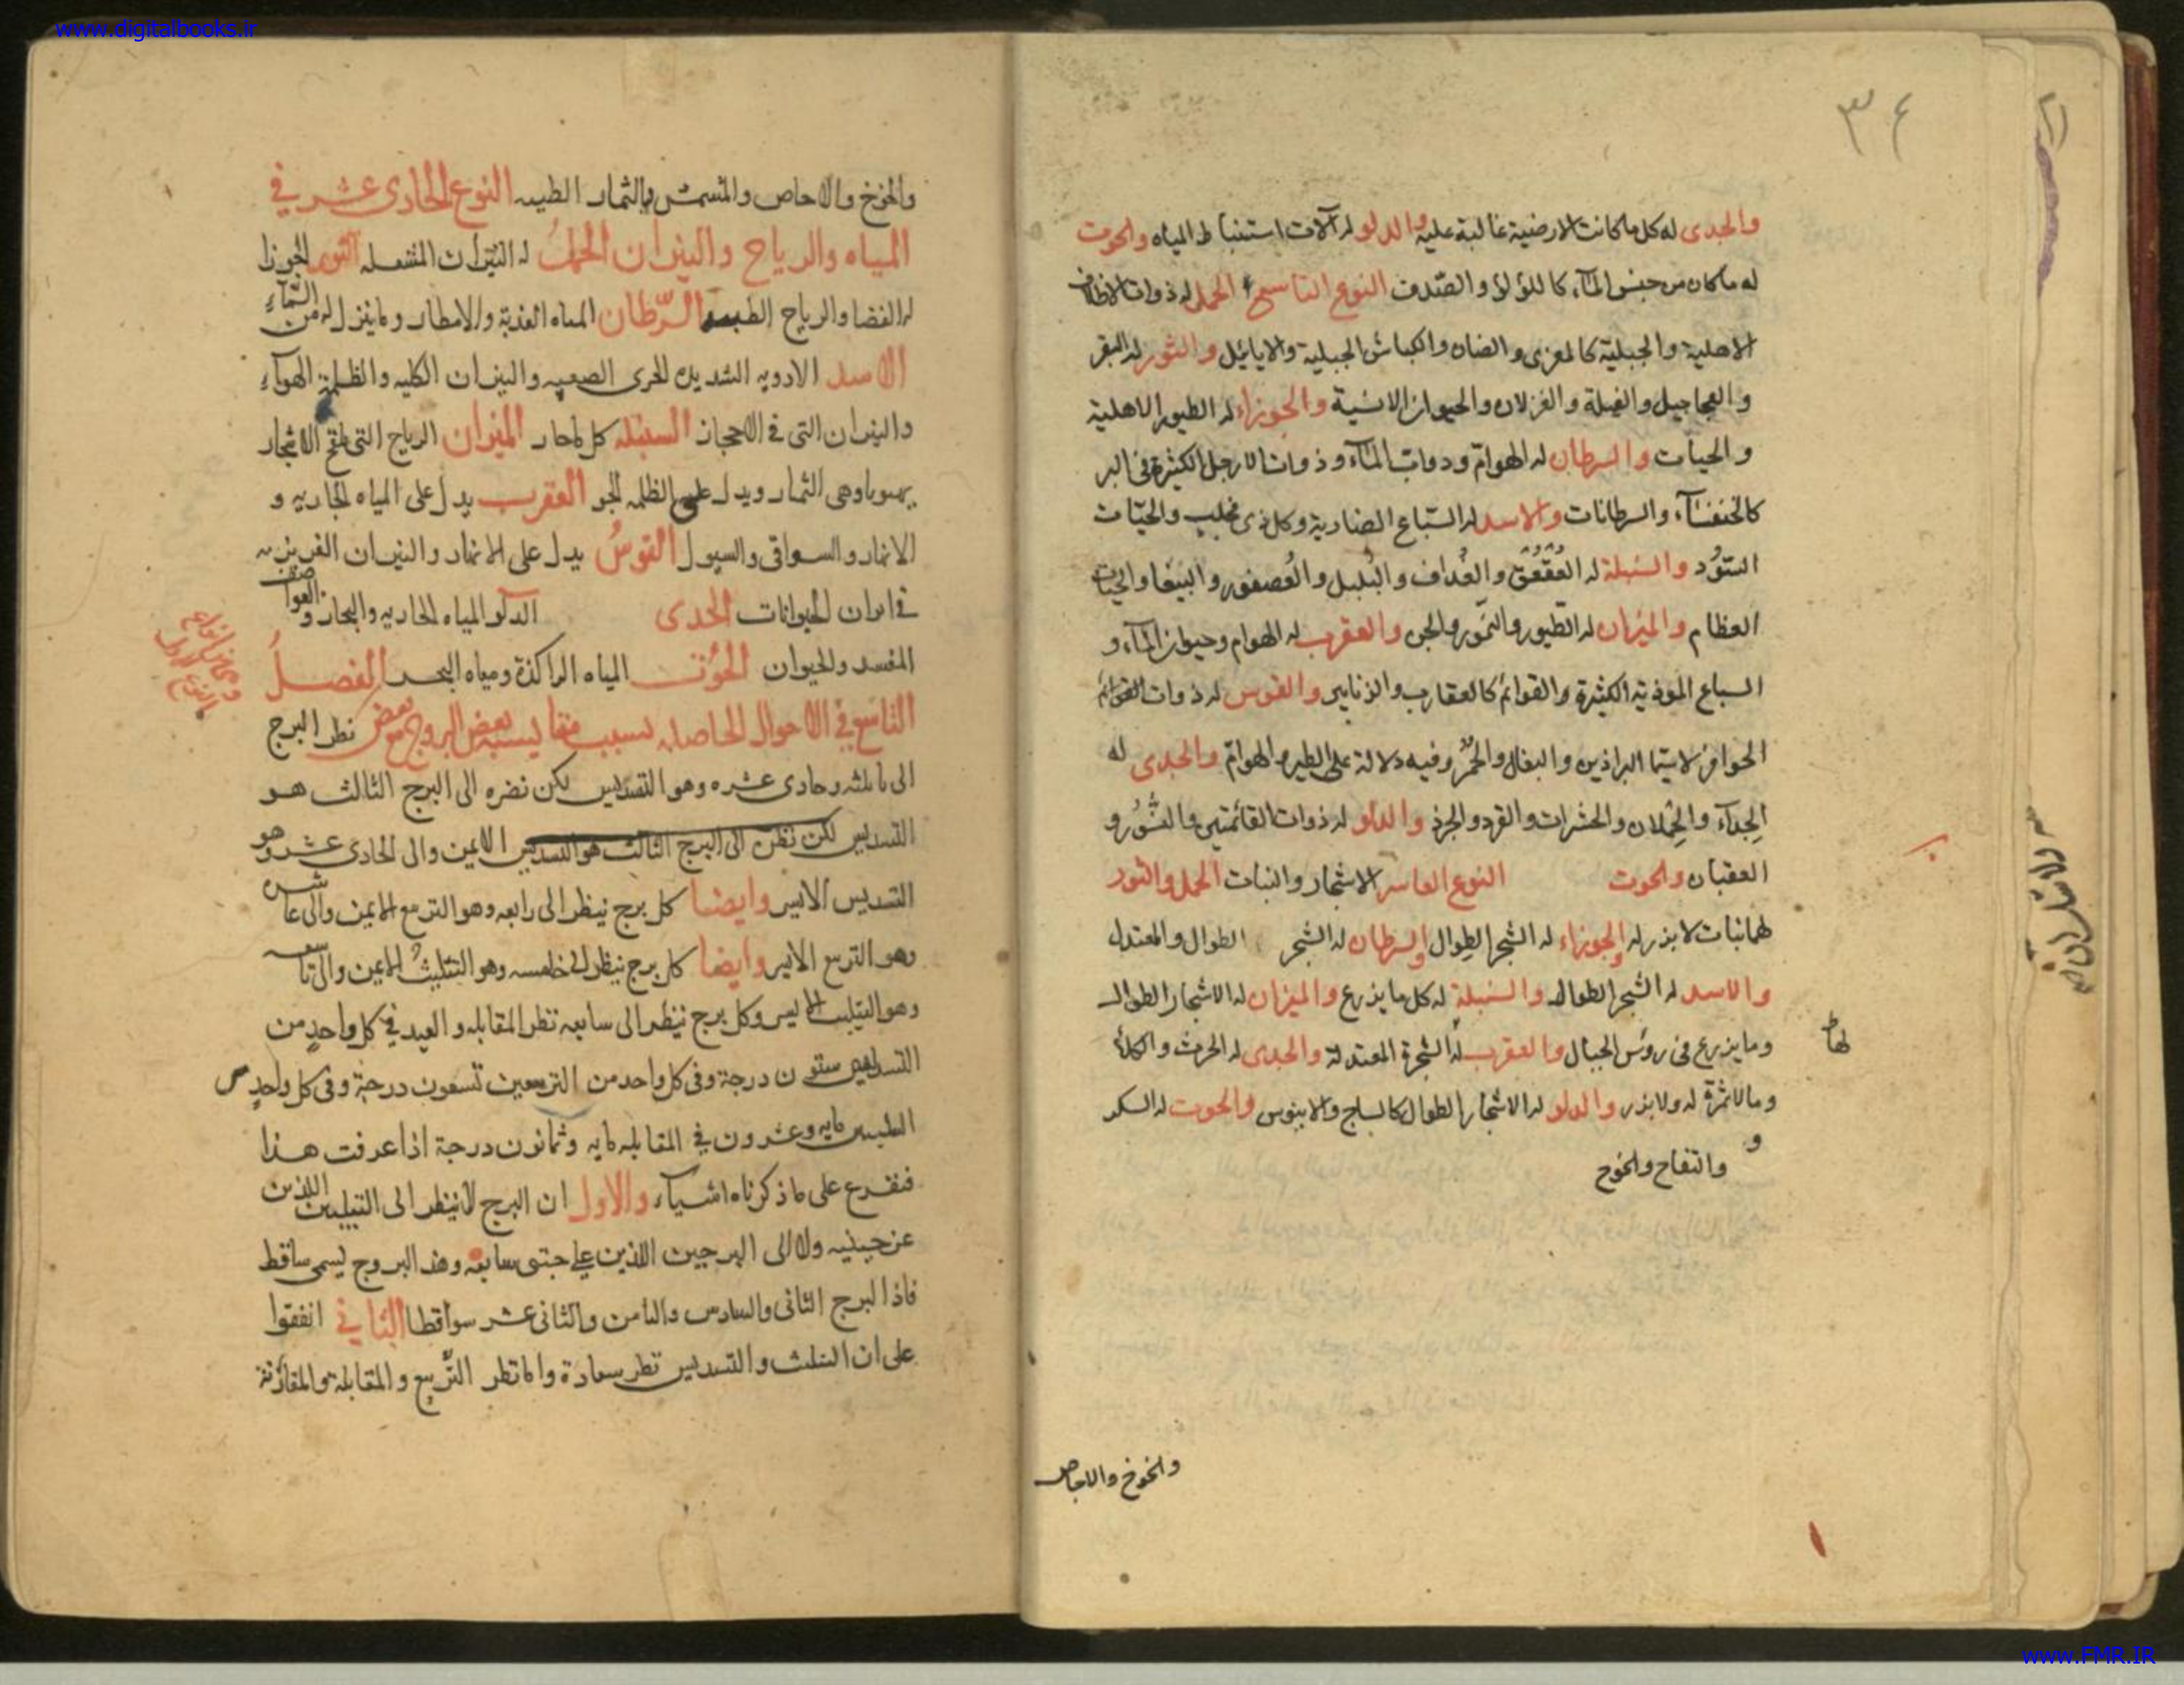 www.digitalbooks.ir
٣٤
والجدى له كل ما كانت الارضية غالبة عليه والدلو له آلات استنباط المياه والحوت
له ما كان من جنس المآء كاللؤلؤ والصدف النوع التاسع الحمل له ذوات الاظلاف
الاهلية والجبلية كالمعزى والضان والكباش الجبلية والايائل والثور له البقر
والعجاجيل والفيلة والغزلان والحيوان الانسية والجوزاء له الطيور الاهلية
والحيات والسرطان له الهوام ودواب المآء وذوات الارجل الكثيرة فى البر
كالخنفسآء والسرطانات والاسد له السباع الضارية وكل ذى مخلب والحيات
السود والسنبلة له العقعق والغداف والبلبل والعصفور والببغا والحيات
العظام والميزان له الطيور والنمور والجن والعقرب له الهوام وحيوان المآء و
السباع الموذية الكثيرة والقوائم كالعقارب والزنابير والقوس له ذوات القوائم
الحوافر لاسيما البراذين والبغال والحمر وفيه دلالة على الطير والهوام والجدى له
الجدآء والحملان والحشرات والقرد والجرذ والدلو له ذوات القائمتين والنسور و
العقبان والحوت النوع العاشر الاشجار والنبات الحمل والثور
لهما نبات لا بذر له والجوزاء له الشجر الطوال والسرطان له الشجر الطوال والمعتدل
والاسد له الشجر الطوال والسنبلة له كل ما يزرع والميزان له الاشجار الطوال
وما يزرع فى رؤس الجبال والعقرب له الشجرة المعتدلة والجدى له الحرث والكلاء
لها
وما لا ثمرة له ولا بذر والدلو له الاشجار الطوال كالساج والابنوس والحوت له السكر
و
والتفاح والخوخ
والخوخ والاجاص
والخوخ والاجاص والمشمش والثمار الطيبه النوع الحادى عشر فى
المياه والرياح والنيران الحمل له النيران المشتعله الثور الجوزا
له الفضا والرياح الطيبه السرطان المياه العذبة والامطار وما ينزل من السمآء
الاسد الادويه الشديده الجرى الصعبه والنيران الكليه والظلمة الهوآء
والنيران التى فى الاحجار السنبله كل ما جار الميزان الرياح التى تلقح الاشجار
الثمار ويدل على الظلمه الجو العقرب يدل على المياه الجاريه و
الانهار والسواقى والسيول القوس يدل على الانهار والنيران الغريزيه
فى ابدان الحيوانات الجدى الدلو المياه الجاريه والبحار و
المفسد والحيوان الحوت المياه الراكدة ومياه البحر الفصل
التاسع فى الاحوال الحاصله بسبب بعض البروج بعض نظر البرج
الى ثالثه وحادى عشره وهو التسديس لكن نضره الى البرج الثالث هو
التسديس لكن نظره الى البرج الثالث هو التسديس الايمن والى الحادى عشر وهو
التسديس الايسر وايضا كل برج ينظر الى رابعه وهو التربيع الايمن والى عاشره
وهو التربيع الايسر وايضا كل برج ينظر الى خامسه وهو التثليث الايمن والى تاسعه
وهو التثليث الايسر وكل برج ينظر الى سابعه نظر المقابله والبعد فى كل واحد من
التسديسين ستون درجة وفى كل واحد من التربيعين تسعون درجة وفى كل واحد من
التثليثين مايه وعشرون فى المقابله مايه وثمانون درجة اذا عرفت هذا
فنفرع على ما ذكرناه اشيآء والاول ان البرج لا ينظر الى اللذين
عن جنبيه ولا الى البرجين اللذين على جنبتى سابعه وهذه البروج ليسمى ساقط
فاذا البرج الثانى والسادس والثامن والثانى عشر سواقطا الثانى اتفقوا
على ان التثليث والتسديس نظر سعادة واما نظر التربيع والمقابلة والمقارنة
www.FMR.IR